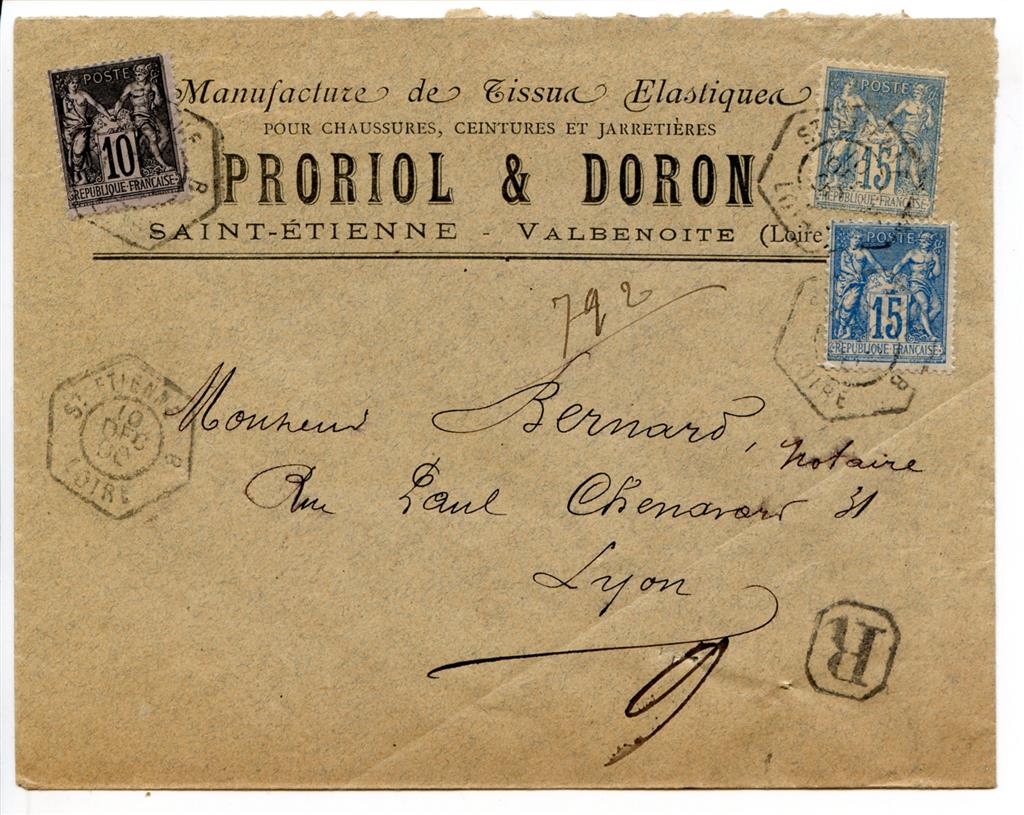 POSTE
10
REPUBLIQUE FRANÇAISE
Manufacture de Tissus Elastiques
POUR CHAUSSURES, CEINTURES ET JARRETIÈRES
PRORIOL & DORON
SAINT-ÉTIENNE - VALBENOITE (Loire
POSTE
15
REPUBLIQUE FRANÇAISE
POSTE
15
REPUBLIQUE FRANÇAISE
LOIRE
B
792
ST ETIENNE B
10
DEC
LOIRE
Monsieur Bernard, notaire
Rue Paul Chenavard 31
Lyon
R